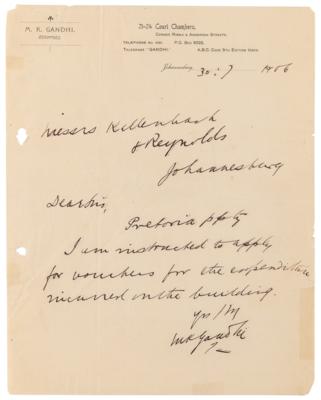 M. K. GANDHI.
ATTORNEY.
21-24 Court Chambers,
CORNER RISSIK & ANDERSON STREETS,
TELEPHONE No. 1635.
P.O. BOX 6522.
TELEGRAMS "GANDHI".
A.B.C. CODE 5TH EDITION USED.
Johannesburg, 30 : 7 1906
Messrs Kallenbach
& Reynolds
Johannesburg
Dear Sirs,
Pretoria ppty
I am instructed to apply
for vouchers for the expenditure
incurred on the building.
Yrs
MKGandhi